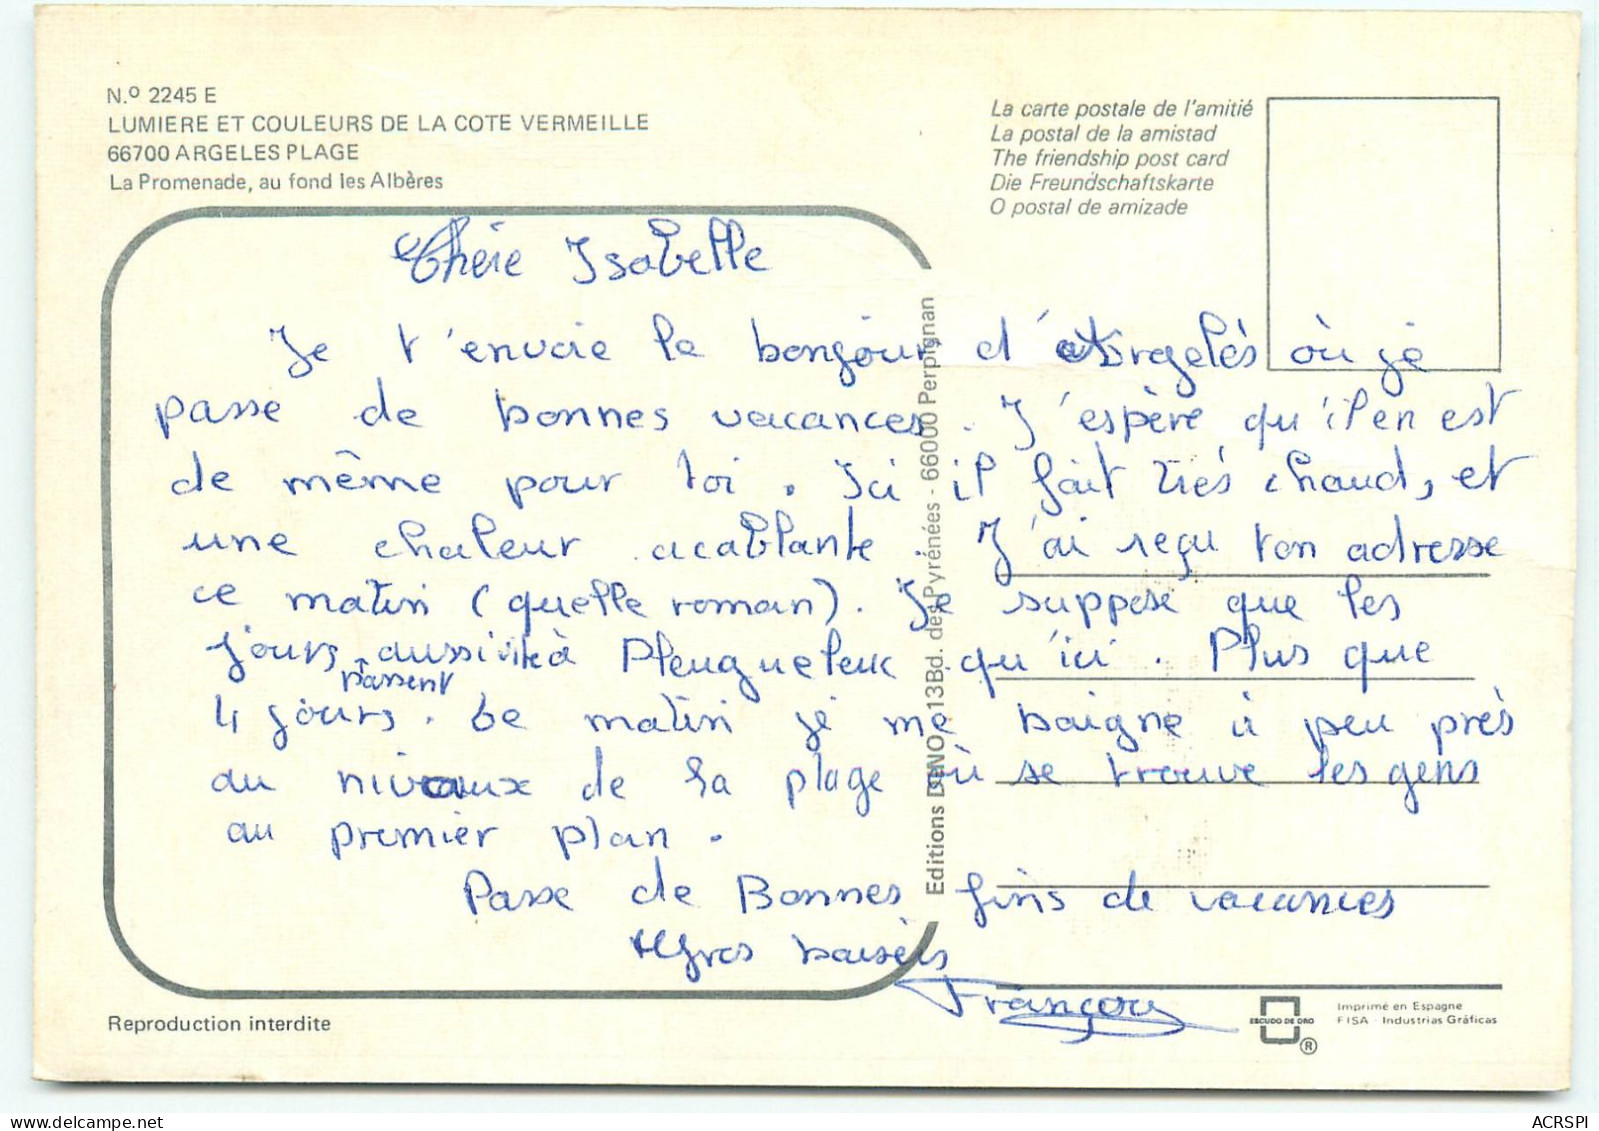 N.º 2245 E
LUMIERE ET COULEURS DE LA COTE VERMEILLE
66700 ARGELES PLAGE
La Promenade, au fond les Albères
La carte postale de l'amitié
La postal de la amistad
The friendship post card
Die Freundschaftskarte
O postal de amizade
Chère Isabelle
Je t'envoie le bonjour d'Argelés où je
passe de bonnes vacances. J'espère qu'il en est
de même pour toi. Ici il fait très chaud, et
une chaleur acablante. J'ai reçu ton adresse
ce matin (quelle roman). Je suppose que les
jours passent aussi vite à Pleugueleuc qu'ici. Plus que
4 jours. Ce matin je me baigne à peu près
au niveaux de la plage où se trouve les gens
au premier plan.
Passe de Bonnes fins de vacances
Gros baisers
Editions DINO - 13Bd. des Pyrénées - 66000 Perpignan
Reproduction interdite
ESCUDO DE ORO
®
Imprimé en Espagne
FISA - Industrias Gráficas
ACRSPI